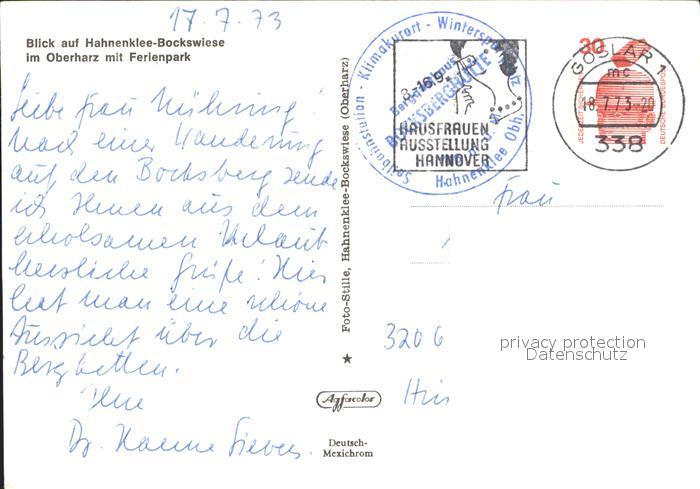 17.7.73
Blick auf Hahnenklee-Bockswiese
im Oberharz mit Ferienpark
Liebe Frau Mühring!
Nach einer Wanderung
auf den Bocksberg sende
ich Ihnen aus dem
erholsamen Urlaub
herzliche Grüße! Hier
hat man eine schöne
Aussicht über die
Bergketten.
Ihre
Dr. Hanne Sievers.
Foto-Stille, Hahnenklee-Bockswiese (Oberharz)
Agfacolor
Deutsch-
Mexichrom
Seilbahnstation - Klimakurort - Wintersportplatz
Berggasthaus
BOCKSBERGHÜTTE
Hahnenklee Obh.
8.-16.9.
HAUSFRAUEN
AUSSTELLUNG
HANNOVER
30
DEUTSCHE BUNDESPOST
GOSLAR 1
mc
18.7.73.-20
338
Frau
3206
privacy protection
Datenschutz